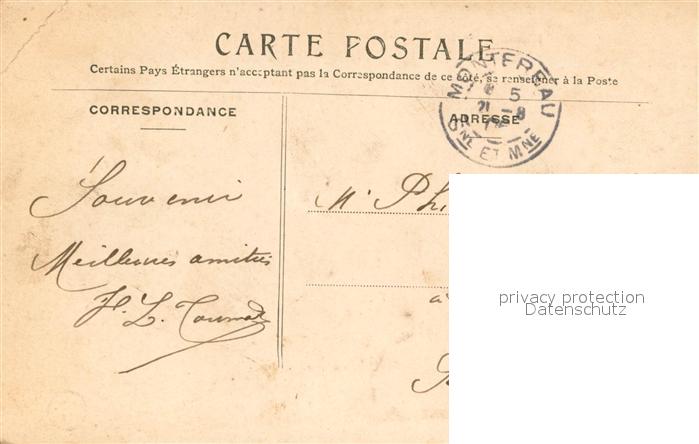 CARTE POSTALE
Certains Pays Étrangers n'acceptant pas la Correspondance de ce côté, se renseigner à la Poste
CORRESPONDANCE
ADRESSE
MONTEREAU
5
21 - 8
ET MNE
Souvenir
Meilleures amitiés
Mr Ph
à
privacy protection
Datenschutz